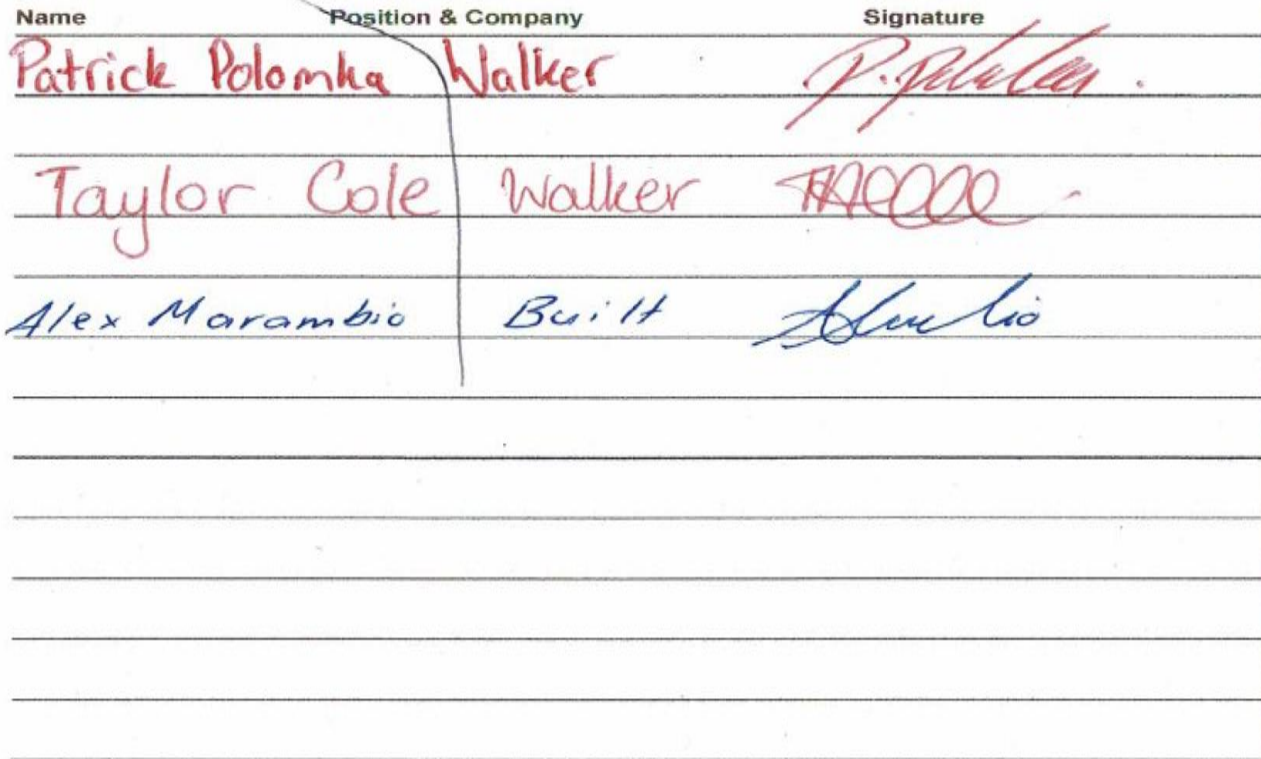 Name Position & Company Signature
Patrick Polomka Walker
Taylor Cole Walker
Alex Marambio Built